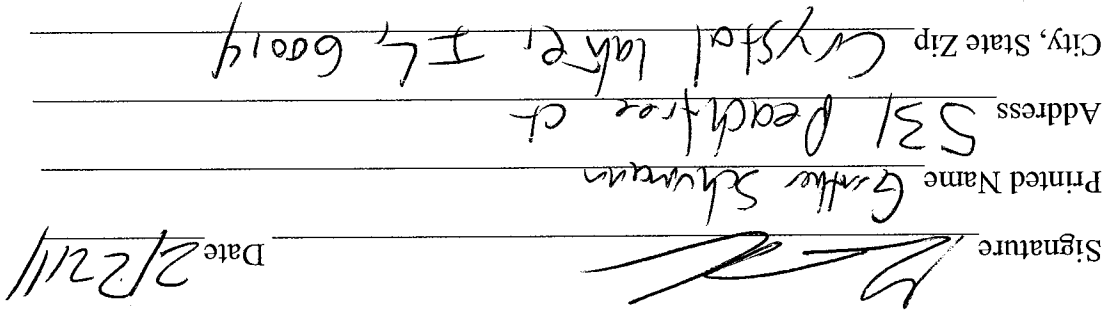 Signature Date 2/22/11
Printed Name Gunther Schumann
Address 531 Peachtree Ct
City, State Zip Crystal Lake, IL, 60014